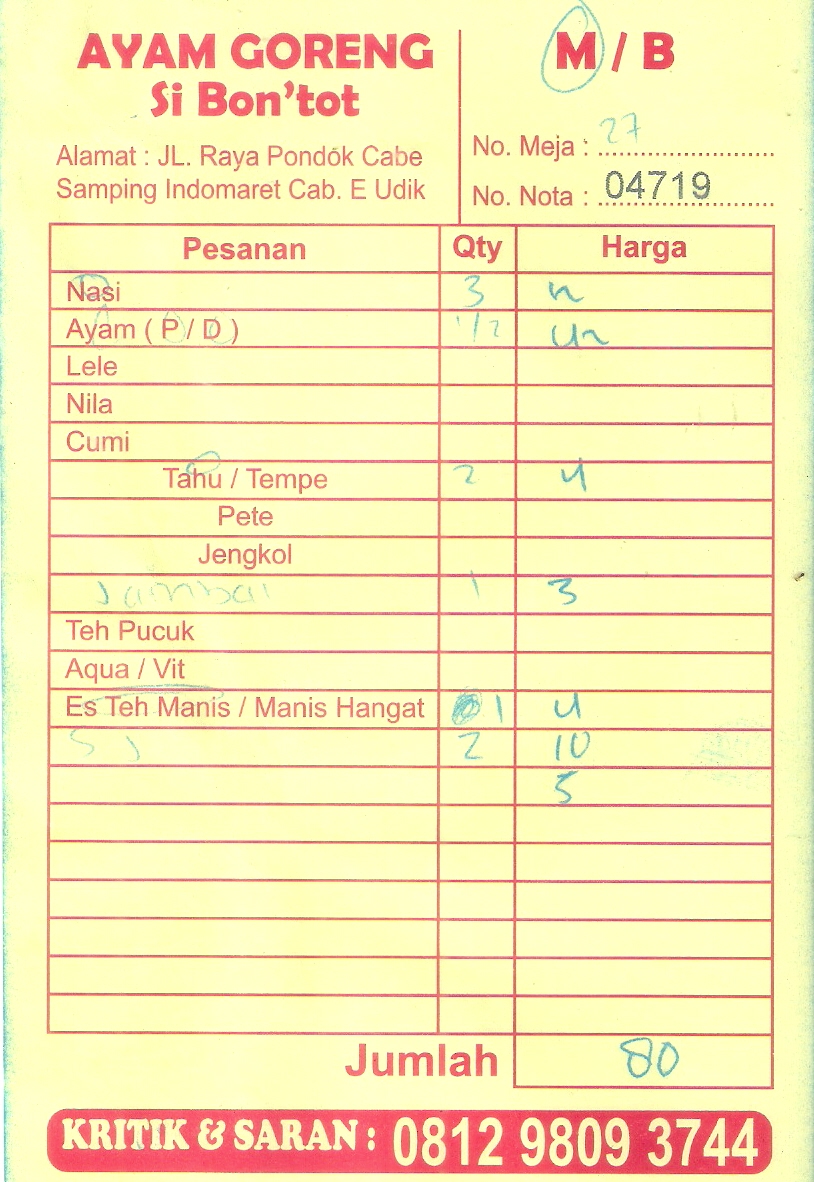 AYAM GORENG
Si Bon'tot
Alamat : JL. Raya Pondok Cabe
Samping Indomaret Cab. E Udik
M / B
No. Meja : 27
No. Nota : 04719
Pesanan Qty Harga
Nasi 3
Ayam ( P / D ) 1/2
Lele
Nila
Cumi
Tahu / Tempe 2 4
Pete
Jengkol
Sambal 1 3
Teh Pucuk
Aqua / Vit
Es Teh Manis / Manis Hangat 1 4
SJ 2 10
5
Jumlah 80
KRITIK & SARAN : 0812 9809 3744